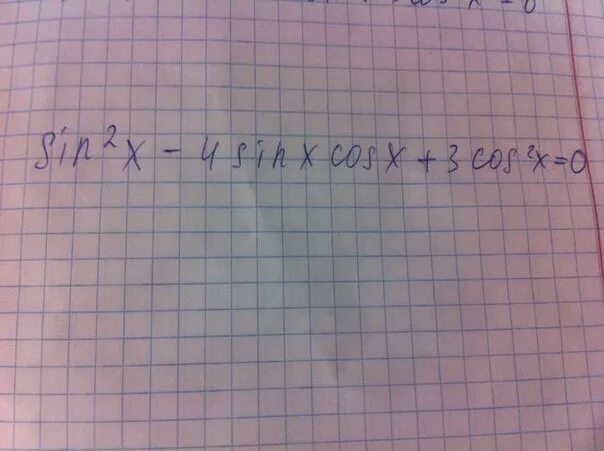 sin²x - 4 sin x cos x + 3 cos²x = 0